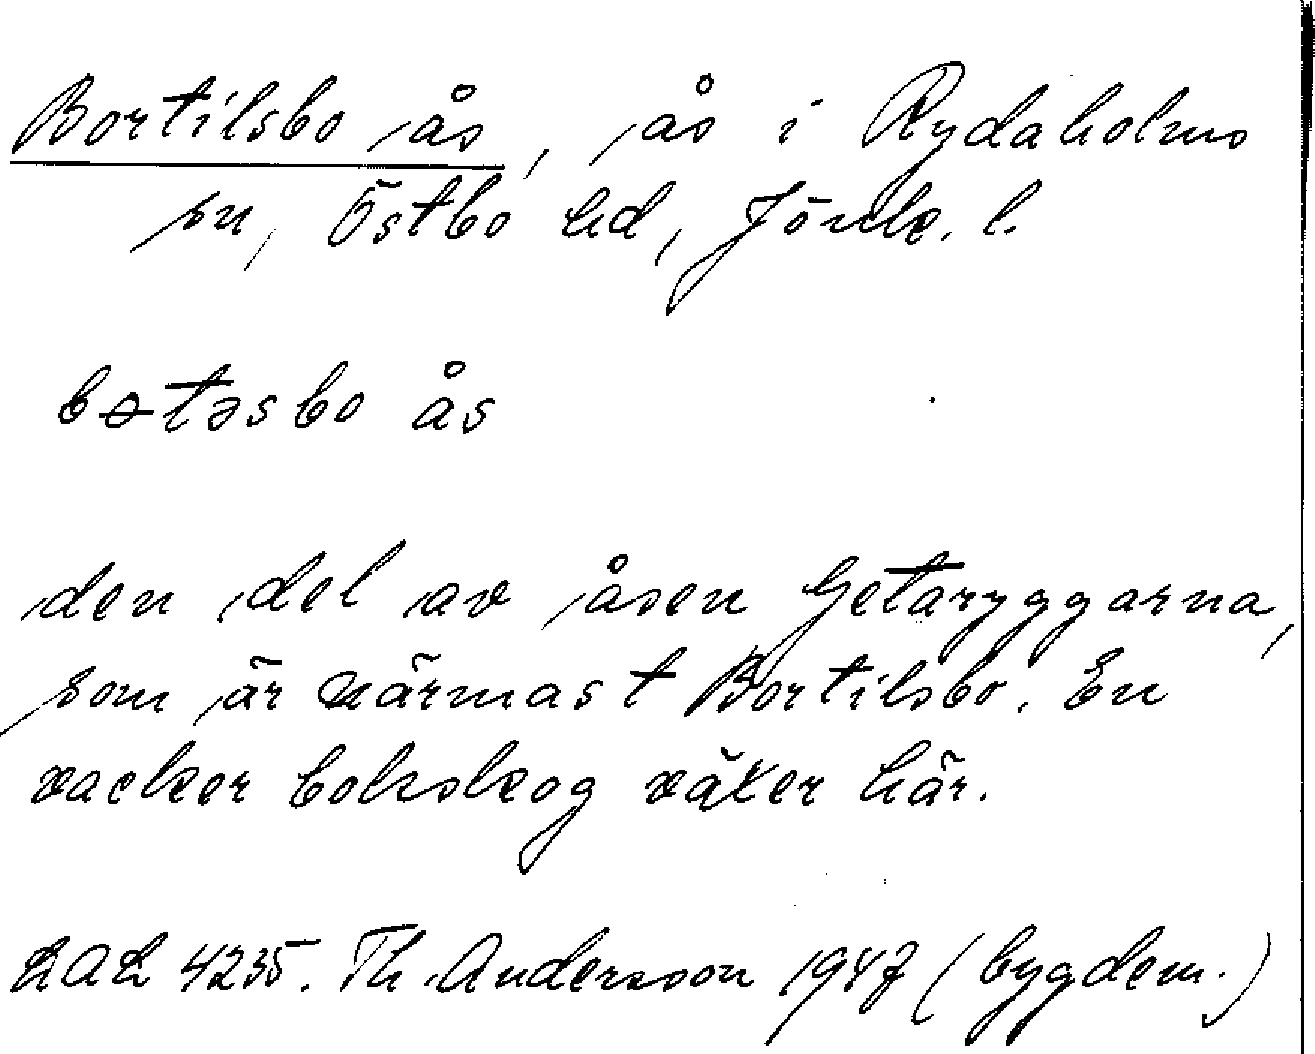 Bortilsbo ås, ås i Rydaholms
sn, Östbo hd, Jönk. l.
bɵtəsbo ås
den del av åsen Getaryggarna,
som är närmast Bortilsbo. En
vacker bokskog växer här.
LAL 4235. Th. Andersson 1947 (bygdem.)